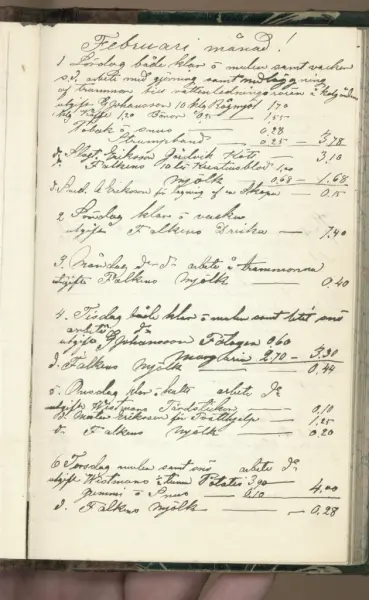 Februari månad!
1 Lördag både klar o mulen samt vacker
s.d. arbete med gjerning samt nedläggning
af trummor vattenledningsrören å
utgift E Johansson 10 kilo Rågmjöl 1,70
kilo Kaffe 1,20 0,25 — 1,55
Tobak o snus — 0,28
Strumpband — 0,25 — 3,78
d. Slagt. Eriksson Kött — 3,10
d. Falkens 10 1,00
Mjölk 0,68 — 1,68
d. Smed. A Erikson för lagning af en — 0,15
2 Söndag klar o vacker
utgift Falkens Dricka — 1,40
3. Måndag d:o d:o arbete å trummorna
utgifts Falkens Mjölk — 0,40
4. Tisdag både klar o mulen samt litet snö
arbete d:o
utgift E Johansson 0,60
Margarin 2,70 — 3,30
d. Falkens Mjölk — 0,44
5. Onsdag klar o kallt arbete d:o
utgift Westmans Tändstickor — 0,10
d. Eriksson för — 1,25
d. Falkens Mjölk — 0,20
6 Torsdag mulen samt snö arbete d:o
utgift Westmans Potatis 3,90
o Snus — 0,10 4,00
d. Falkens Mjölk — 0,28